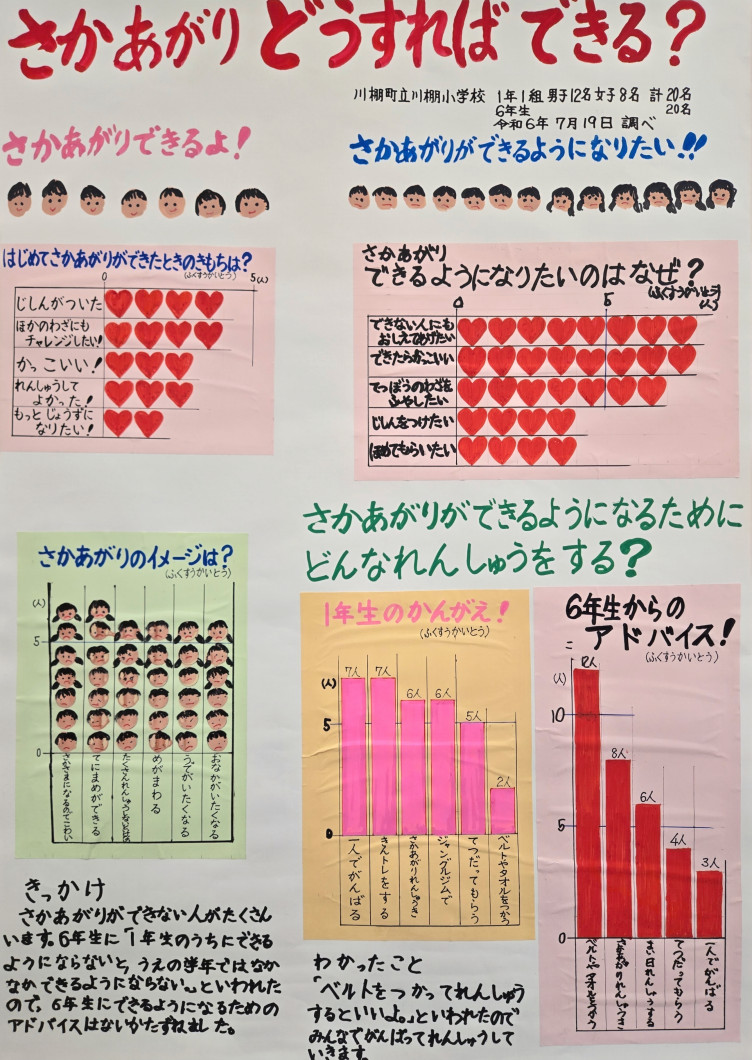 さかあがり どうすれば できる?
川棚町立川棚小学校 1年1組 男子12名 女子8名 計20名
6年生 20名
令和6年 7月19日 調べ
さかあがりできるよ!
さかあがりができるようになりたい!!
はじめてさかあがりができたときのきもちは?
(ふくすうかいとう)
0 5(人)
じしんがついた
ほかのわざにも
チャレンジしたい!
かっこいい!
れんしゅうして
よかった!
もっとじょうずに
なりたい!
さかあがり
できるようになりたいのはなぜ?
(ふくすうかいとう)
0 5 (人)
できない人にも
おしえてあげたい
できたらかっこいい
てつぼうのわざを
ふやしたい
じしんをつけたい
ほめてもらいたい
さかあがりのイメージは?
(ふくすうかいとう)
(人)
5
0
さかさまになるのでこわい
てにまめができる
めがまわる
うでがいたくなる
おなかがいたくなる
さかあがりができるようになるために
どんなれんしゅうをする?
1年生のかんがえ!
(ふくすうかいとう)
(人)
5
0
7人 7人 6人 6人 5人 2人
一人でがんばる
きんトレをする
さかあがりれんしゅうき
ジャングルジムで
てつだってもらう
ベルトやタオルをつかう
6年生からの
アドバイス!
(ふくすうかいとう)
(人)
10
5
0
12人 8人 6人 4人 3人
ベルトやタオルをつかう
さかあがりれんしゅうき
まい日れんしゅうする
てつだってもらう
一人でがんばる
きっかけ
さかあがりができない人がたくさん
います。6年生に「1年生のうちにできる
ようにならないと、うえの学年ではなか
なかできるようにならない。」といわれた
ので、6年生にできるようになるための
アドバイスはないかたずねました。
わかったこと
「ベルトをつかってれんしゅう
するといいよ。」といわれたので
みんなでがんばってれんしゅうして
いきます。